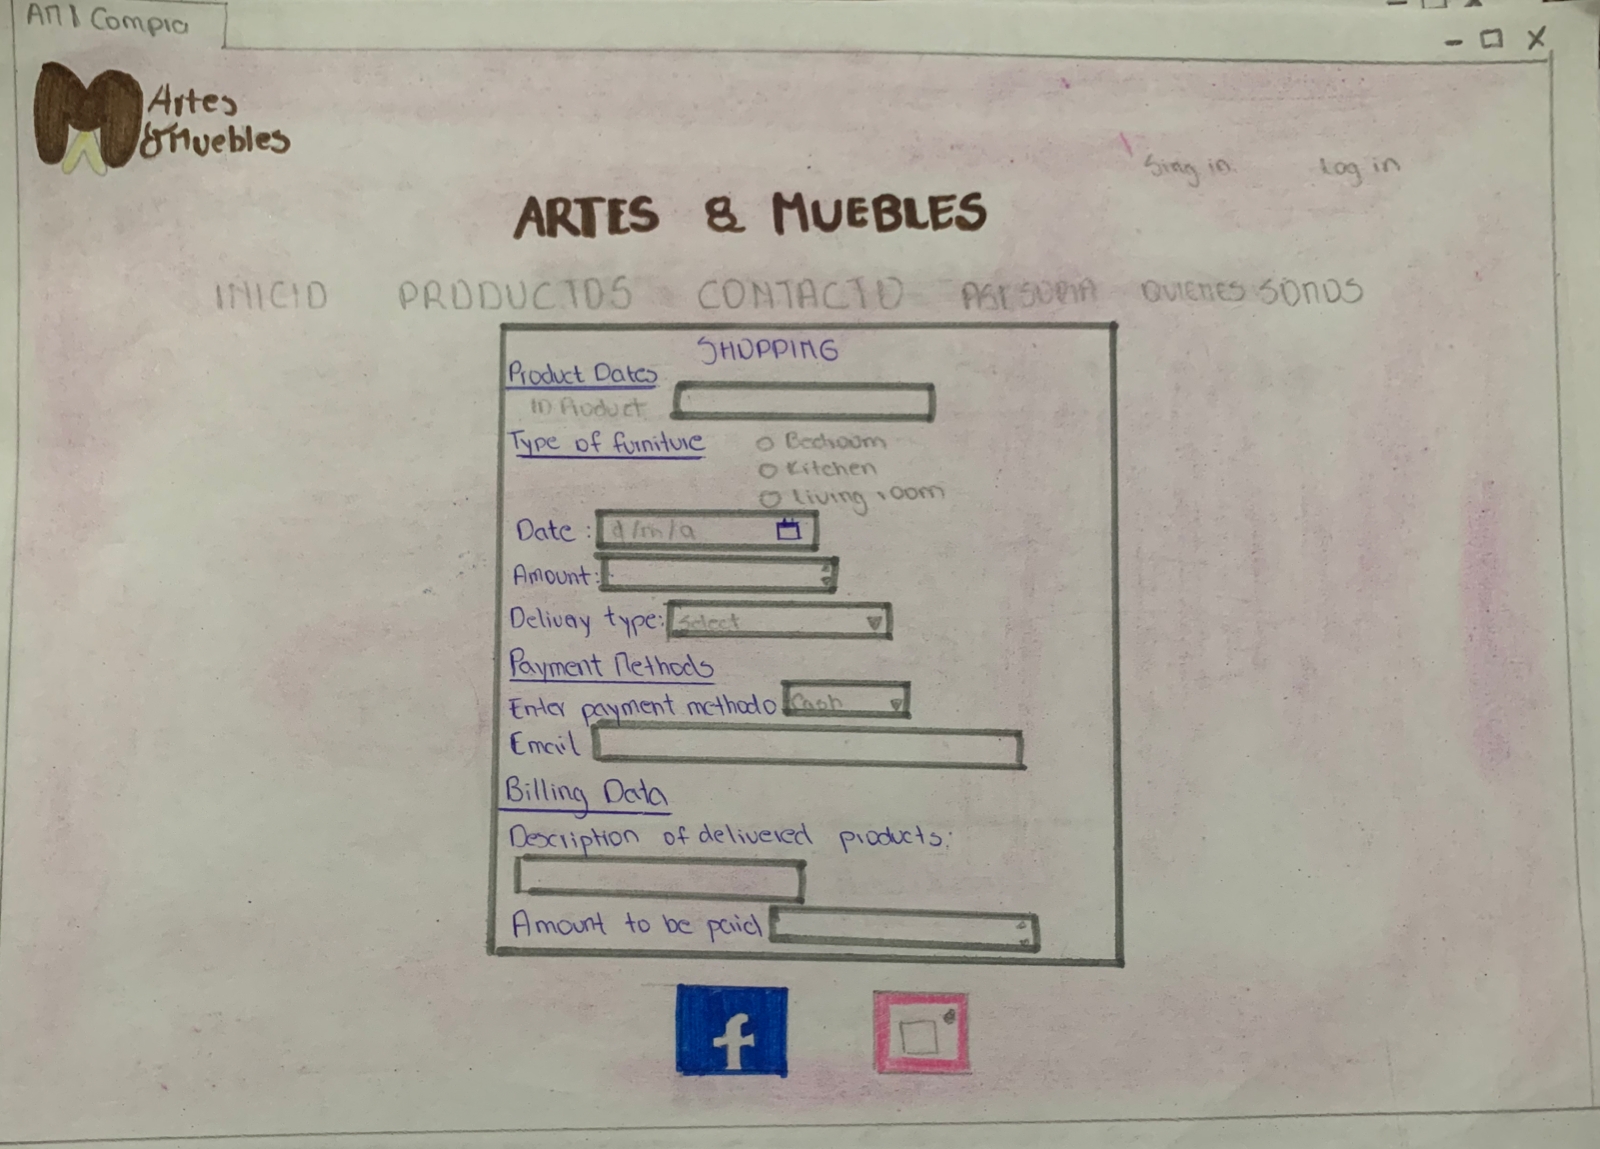 AM Compra
Artes
& Muebles
Sing in
Log in
ARTES & MUEBLES
INICIO PRODUCTOS CONTACTO ASESORIA QUIENES SOMOS
SHOPPING
Product Dates
ID Product
Type of furniture
Bedroom
Kitchen
Living room
Date: d/m/a
Amount:
Delivay type: Select
Payment Methods
Enter payment methodo Cash
Email
Billing Data
Description of delivered products:
Amount to be paid
f